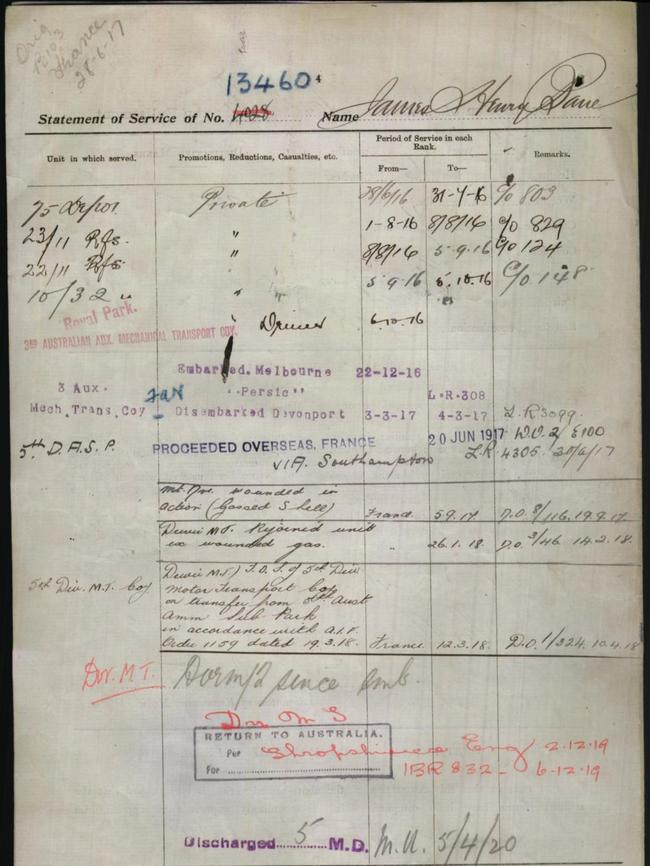 Orig
France
28-6-17
13460
Statement of Service of No. 4028 Name James Henry Dane
Unit in which served.
Promotions, Reductions, Casualties, etc.
Period of Service in each Rank.
From—
To—
Remarks.
75 Depot Private 28/6/16 31-7-16 C/o 803
23/11 Rfs. " 1-8-16 8/8/16 C/o 829
22/11 Rfs " 8/8/16 5-9-16 C/o 124
10/32 " " 5-9-16 5.10.16 C/o 148
Royal Park.
Driver 6.10.16
3RD AUSTRALIAN AUX. MECHANICAL TRANSPORT COY.
Embarked. Melbourne 22-12-16
3 Aux. "Persic" L.R.308
Mech.Trans.Coy Disembarked Devonport 3-3-17 4-3-17 L.R 3099.
5th D.A.S.P. PROCEEDED OVERSEAS, FRANCE 20 JUN 1917 E100
VIA. Southampton L.R. 4305 20/6/17
Mt. Dvr. wounded in
action (Gassed Shell) France 5.9.17. D.O. 8/116. 19.9.17.
Driver M.T. Rejoined unit
ex wounded gas. " 26.1.18. D.O. 3/46 14.2.18.
5th Div. M.T. Coy Driver M.T.) T.O.S. of 5th Div
Motor Transport Coy
on transfer from Aust
Amm Sub Park
in accordance with A.I.F.
Order 1109 dated 19.3.18. France. 12.3.18. D.O. 1/324. 10.4.18
Dvr. M.T. since emb.
RETURN TO AUSTRALIA.
Per Shropshire Eng 2.12.19
For IBR 832- 6-12.19
Discharged 5 M.D. M.U. 5/4/20